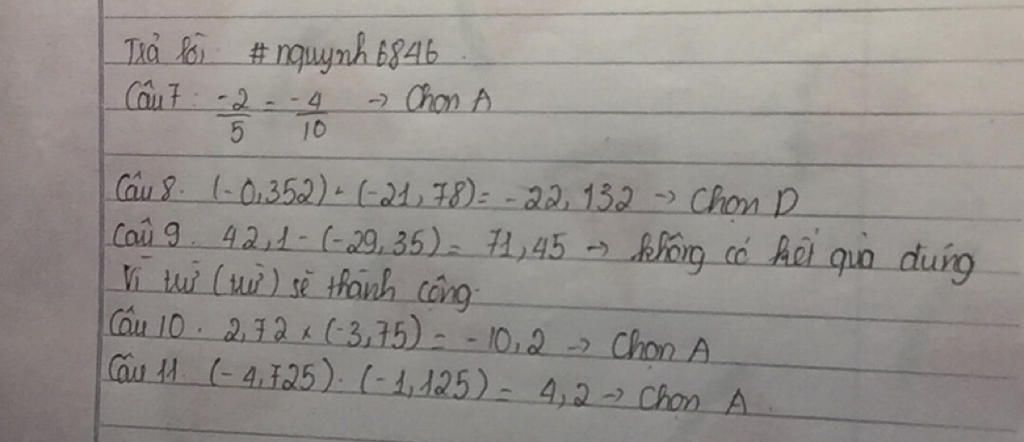 Trả lời #nquynh6846.
Câu 7. -2/5 = -4/10 → Chọn A
Câu 8. (-0,352) + (-21,78) = -22,132 → Chọn D
Câu 9. 42,1 - (-29,35) = 71,45 → không có kết quả đúng
Vì trừ (trừ) sẽ thành cộng.
Câu 10. 2,72 x (-3,75) = -10,2 → Chọn A
Câu 11. (-4,725) : (-1,125) = 4,2 → Chọn A.